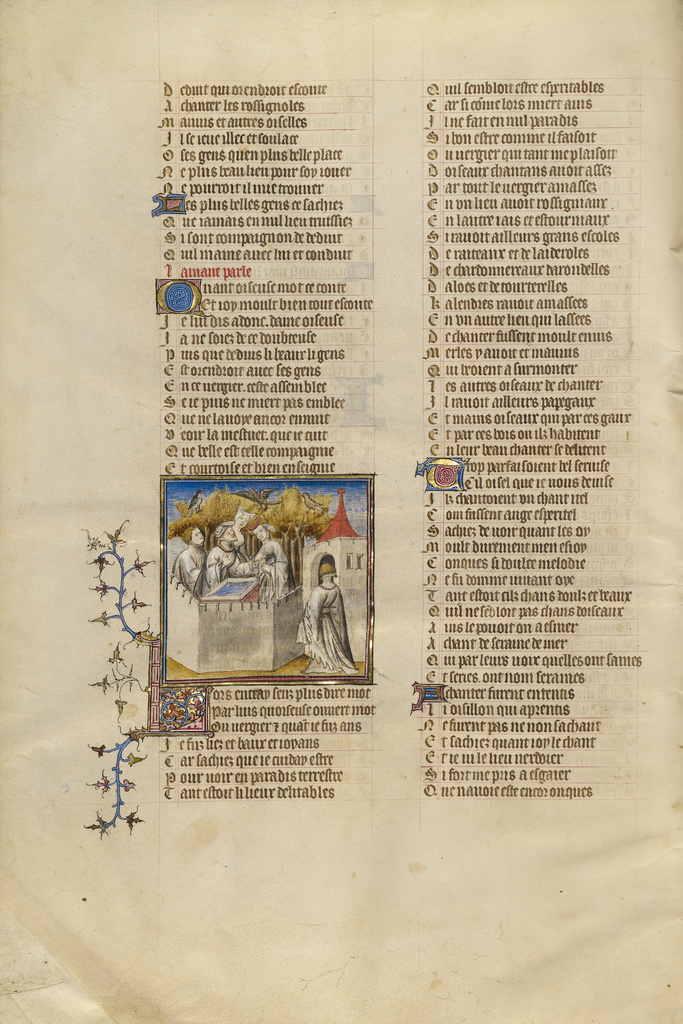 Deduit qui orendroit escoute
A chanter les rossignoles
Mauuis et autres oiselles
Il se ieue illec et soulace
O ses gens quen plus belle place
Ne plus beau lieu pour soy iouer
Ne pourroit il mie trouuer
Les plus belles gens ce sachiez
Que iamais en nul lieu truissiez
Si sont compaignon de deduit
Quil maine auec lui et conduit
Lamant parle
Quant oiseuse mot ce conte
Et ioy moult bien tout escoute
Je lui dis adonc. dame oiseuse
Ja ne soiez de ce doubteuse
Puis que deduis li beaux li gens
Est orendroit auec ses gens
En ce vergier. ceste assemblee
Se ie puis ne miert pas emblee
Que ne la uoye encor ennuit
Veoir la mestuet. que ie cuit
Que belle est celle compaignie
Et courtoise et bien enseignie
Lors entray senz plus dire mot
Par luis quoiseuse ouuert mot
Ou vergier & quant ie fuz ans
Je fuz liez et baux et ioyans
Car sachiez que ie cuiday estre
Pour uoir en paradis terrestre
Tant estoit li lieux delitables
Quil sembloit estre esperitables
Car si come lors miert auis
Il ne fait en nul paradis
Si bon estre comme il faisoit
Ou vergier qui tant me plaisoit
Doiseaux chantans auoit assez
Par tout le vergier amassez
En vn lieu auoit rossigniaux
En lautre iais et estourniaux
Si rauoit ailleurs grans escoles
De raiteaux et de laideroles
De chardonnereaux darondelles
Daloes et de tourterelles
Kalendres rauoit amassees
En vn autre lieu qui lassees
De chanter fussent moult enuis
Merles y auoit et mauuis
Qui beoient a surmonter
Les autres oiseaux de chanter
Il rauoit ailleurs papegaux
Et mains oiseaux qui par ces gaux
Et par ces bois ou ilz habitent
En leur beau chanter se delitent
Trop parfaisoient bel seruise
Cil oisel que ie vous deuise
Ilz chantoient vn chant itel
Com fussent ange esperitel
Sachiez de uoir quant les oy
Moult durement men esioy
Conques si doulce melodie
Ne fu domme uiuant oye
Tant estoit cilz chans doulz et beaux
Quil ne sebloit pas chans doiseaux
Ains le pouoit on a esmer
A chant de seraine de mer
Qui par leurs uoix quelles ont saines
Et series. ont nom seraines
A chanter furent ententis
Li oisillon qui aprentis
Ne furent pas ne non sachant
Et sachiez quant ioy le chant
Et ie ui le lieu uerdoier
Si fort me pris a esgaier
Que nauoie este encor onques